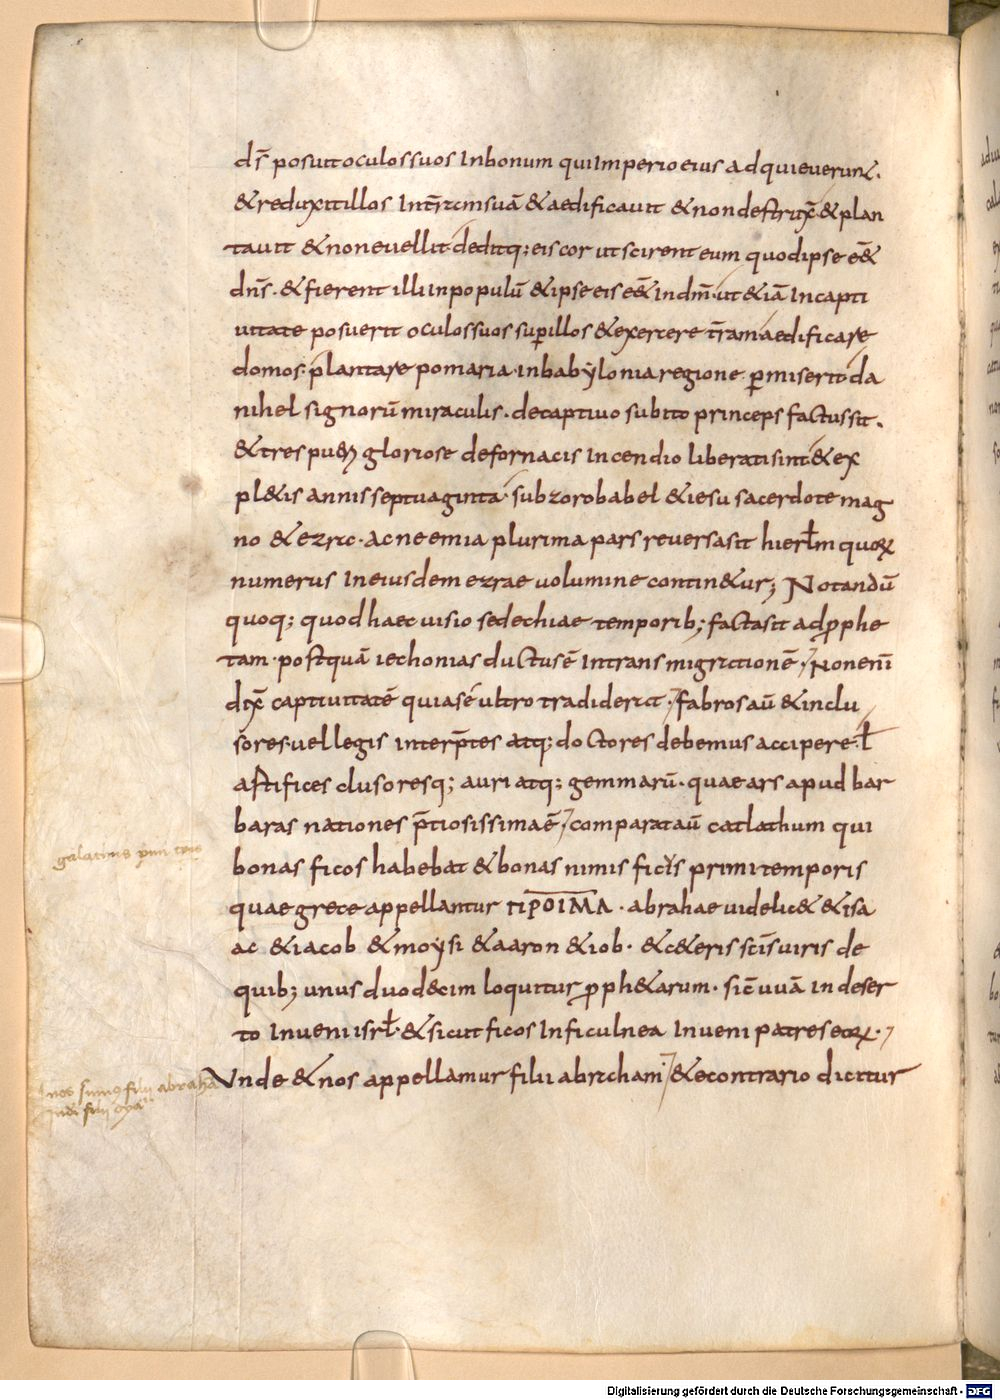 ds̄ posuit oculos suos in bonum qui imperio eius adquieverunt.
& reduxit illos in tr̄am suā & aedificavit & non destrux̄ & plan
tavit & non evellit deditq; eis cor ut scirent eum quod ipse ēē&
dn̄s. & fierent illi in populū & ipse eis ēē& in dm̄. ut & iā in capti
vitate posuerit oculos suos sup̱ illos & exercere tr̄am aedificare
domos. plantare pomaria. in babẏlonia regione. p̱miserit da
nihel signorū miraculis. de captivo subito princeps factus sit.
& tres puęri gloriose de fornacis incendio liberati sint & ex
pl&is annis septuaginta. sub zorobabel & iesu sacerdote mag
no & ezra. ac neemia plurima pars reversa sit hierłm quoꝝ
numerus in eiusdem ezrae volumine contin&ur; Notandū
quoq; quod haec visio sedechiae temporib; facta sit ad ꝓphe
tam. postquā iechonias ductus ē in transmigrationē. Non enī
dix̄ captivitatē quia se ultro tradiderat. fabros aū & inclu
sores. vel legis interp̄tes atq; doctores debemus accipere. ł
artifices clusoresq; auri atq; gemmarū. quae ars apud bar
baras nationes p̄tiosissima ē. comparat aū catlathum qui
bonas ficos habebat & bonas nimis ficis primi temporis
quae grece appellantur ΠΡΟΙΜΑ. abrahae videlic& & isa
ac & iacob & moẏsi & aaron & iob. & c&eris scīs viris de
quib; unus duodecim loquitur ꝓph&arum. sic̄ uvā in deser
to inveni isrł. & sicut ficos in ficulnea inveni patres eoꝝ.
Unde & nos appellamur filii abraham. & econtrario dicitur
galatinus
nos sumus filii abrahā